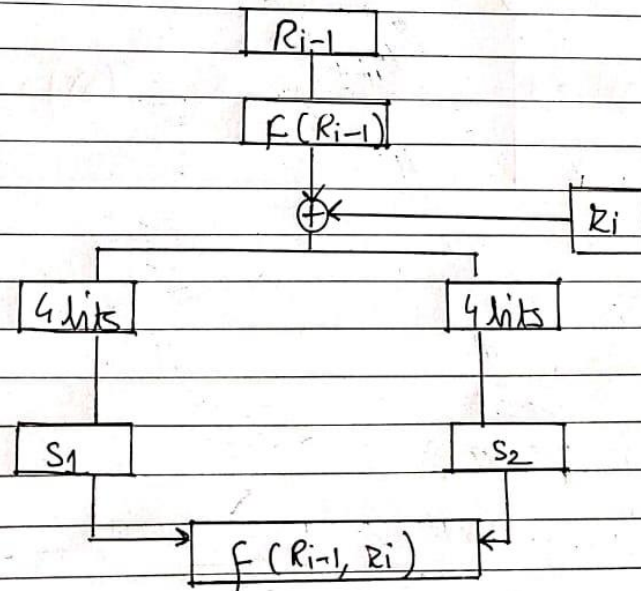 Ri-1
F(Ri-1)
Ki
4 bits
4 bits
S1
S2
f(Ri-1, Ki)